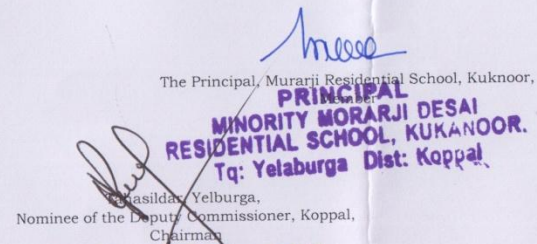 The Principal, Murarji Residential School, Kuknoor,
Member
PRINCIPAL
MINORITY MORARJI DESAI
RESIDENTIAL SCHOOL, KUKANOOR.
Tq: Yelaburga Dist: Koppal
Tahasildar, Yelburga,
Nominee of the Deputy Commissioner, Koppal,
Chairman